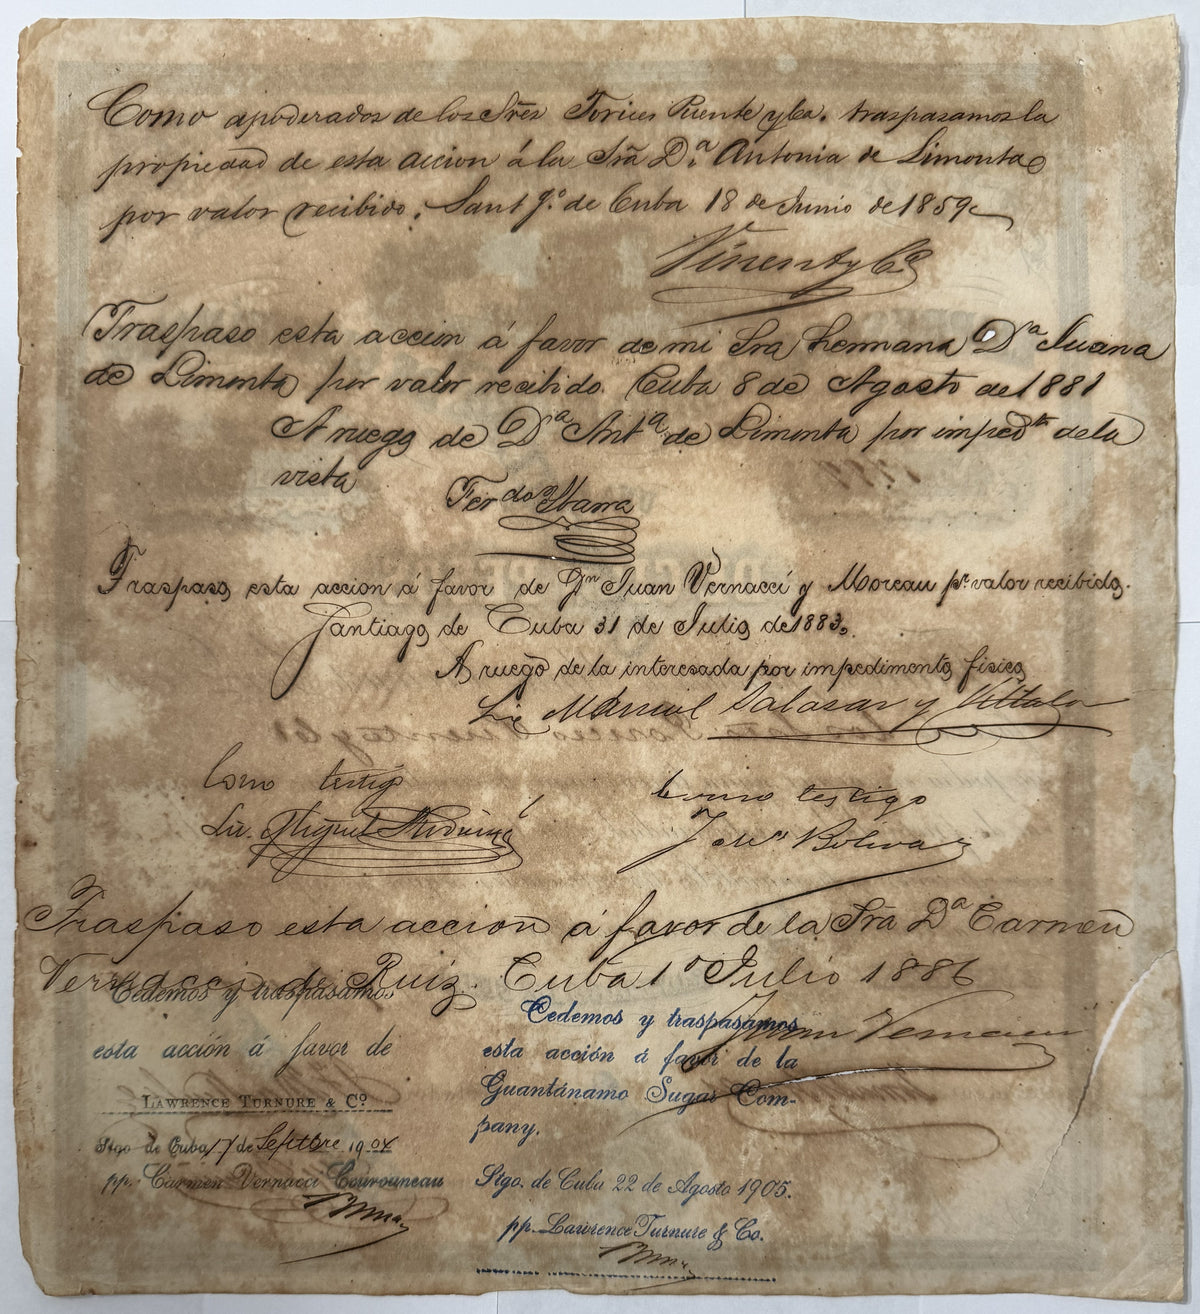 Como apoderados de los Sres Torices Puente y Ca. traspasamos la
propiedad de esta accion á la Sra Da. Antonia de Limonta
por valor recibido. Sant go. de Cuba 18 de Junio de 1859
Vinent y Ca
Traspaso esta accion á favor de mi Sra hermana Da Juana
de Limonta por valor recibido. Cuba 8 de Agosto de 1881
A ruego de Da Anta. de Limonta por impedto de la
vista
Ferdo Ibarra
Traspaso esta accion á favor de Dn Juan Vernacci y Moreau pr. valor recibido.
Santiago de Cuba 31 de Julio de 1883.
A ruego de la interesada por impedimento físico
Lic Manuel Salasar y
Como testigo
Como testigo
Lic. Miguel
J Ma Bolivar
Traspaso esta accion á favor de la Sra Da Carmen
Vernacci de Ruiz. Cuba 1o Julio 1886
Juan Vernacci
Cedemos y traspasamos
esta acción á favor de
LAWRENCE TURNURE & Co.
Stgo de Cuba 17 de Septbre 1904
pp. Carmen Vernacci Courouneau
Cedemos y traspasamos
esta acción á favor de la
Guantánamo Sugar Com-
pany.
Stgo. de Cuba 22 de Agosto 1905.
pp. Lawrence Turnure & Co.